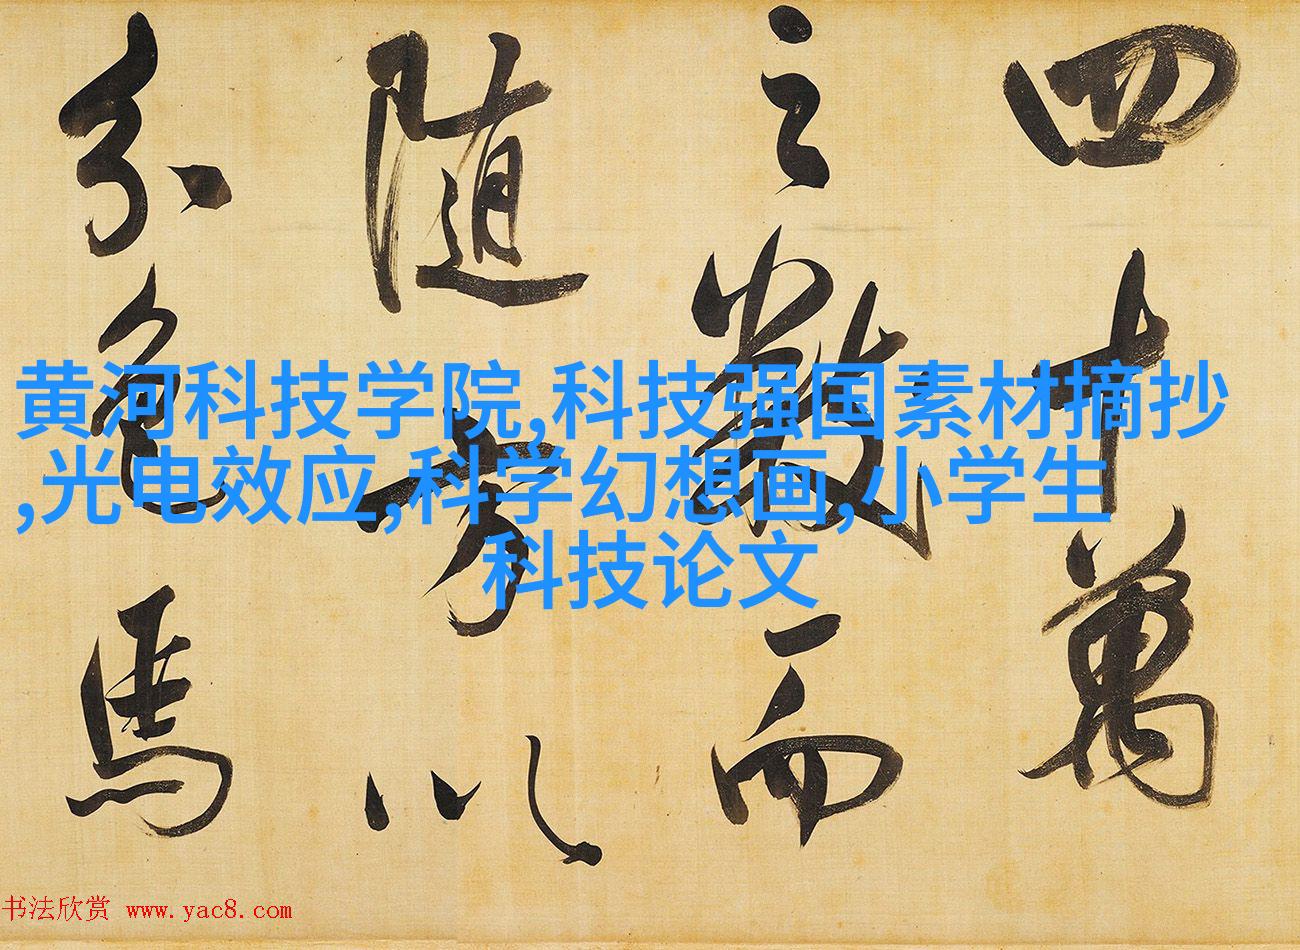 四十萬
之數而
隨方以
分色馬
黄河科技学院,科技强国素材摘抄
,光电效应,科学幻想画,小学生
科技论文
书法欣赏 www.yac8.com